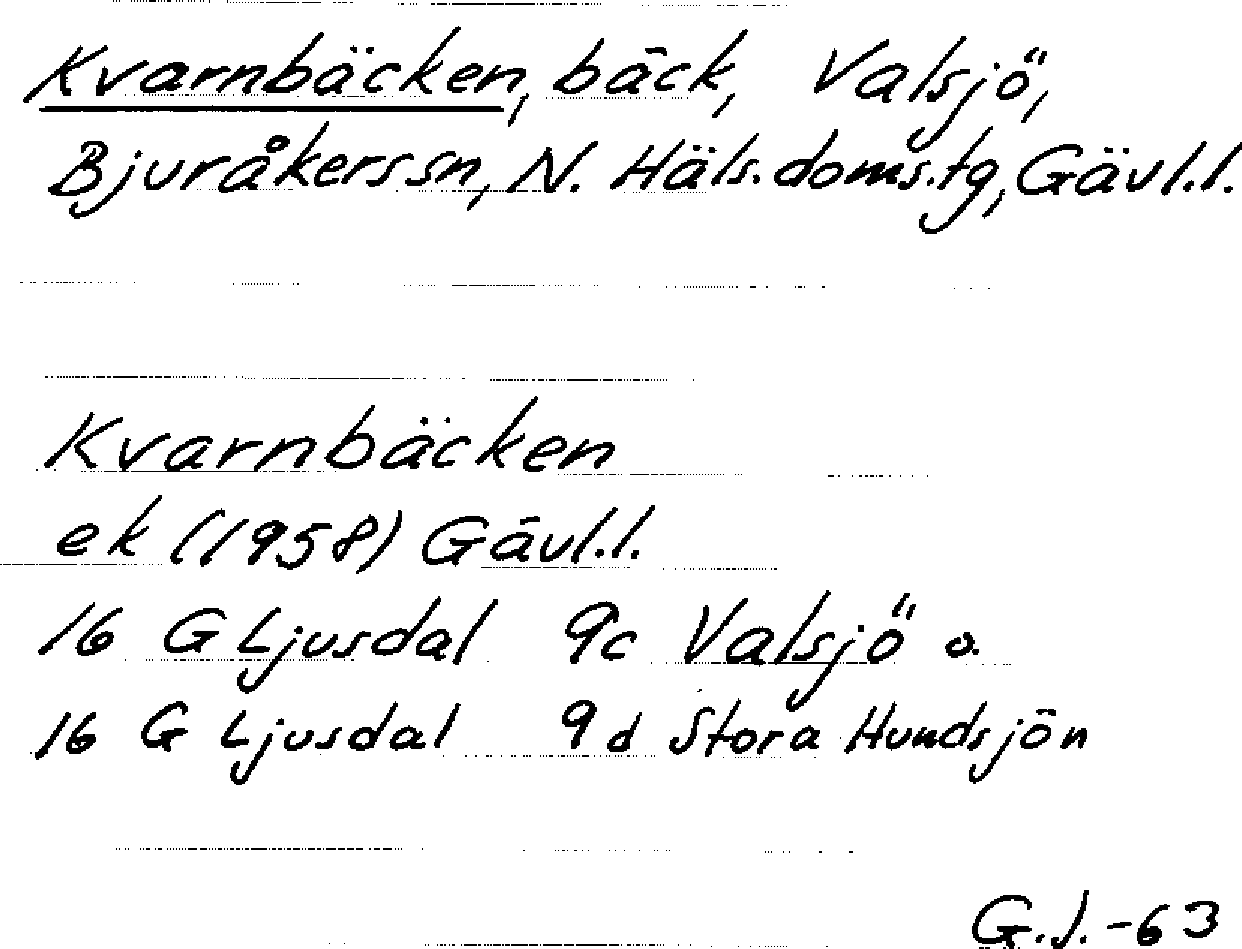 Kvarnbäcken, bäck, Valsjö,
Bjuråkers sn, N. Häls. doms.tg, Gävl.l.
Kvarnbäcken
ek (1958) Gävl.l.
16 G Ljusdal 9c Valsjö o.
16 G Ljusdal 9d Stora Hundsjön
G.J.-63